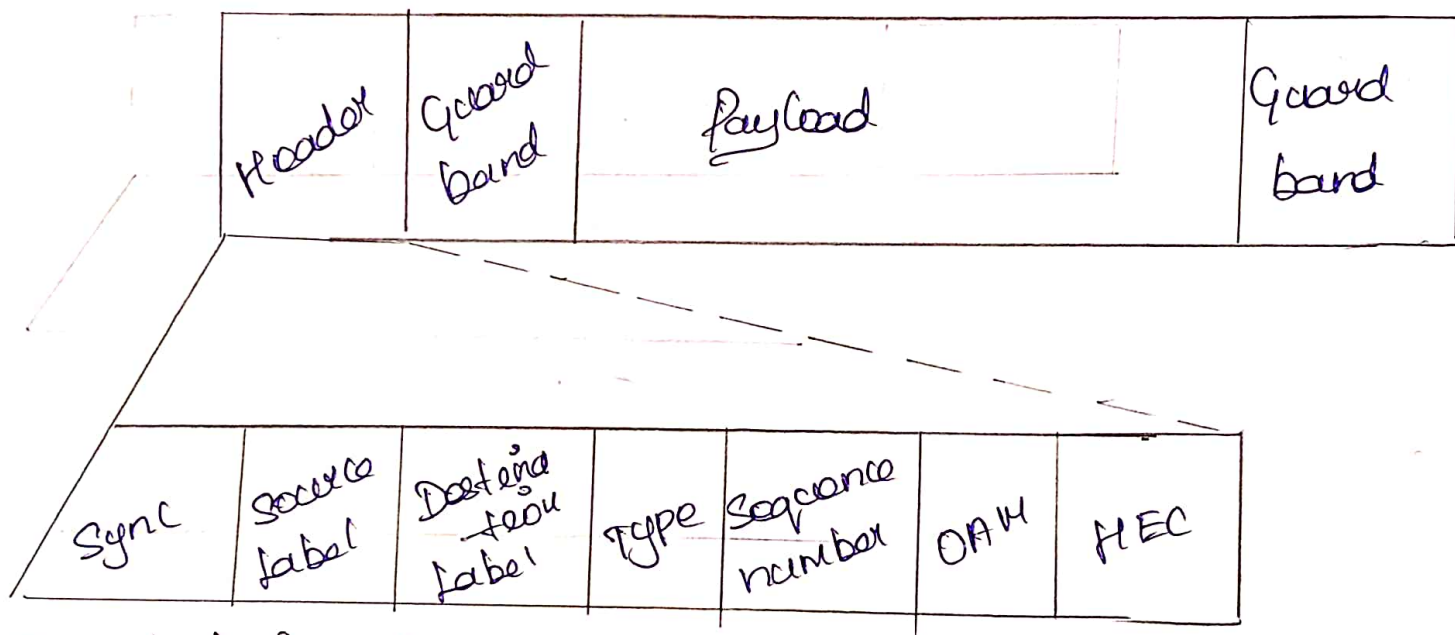 Header
Guard
band
Payload
Guard
band
Sync
Source
Label
Destina
-tion
Label
Type
Sequence
number
OAM
HEC